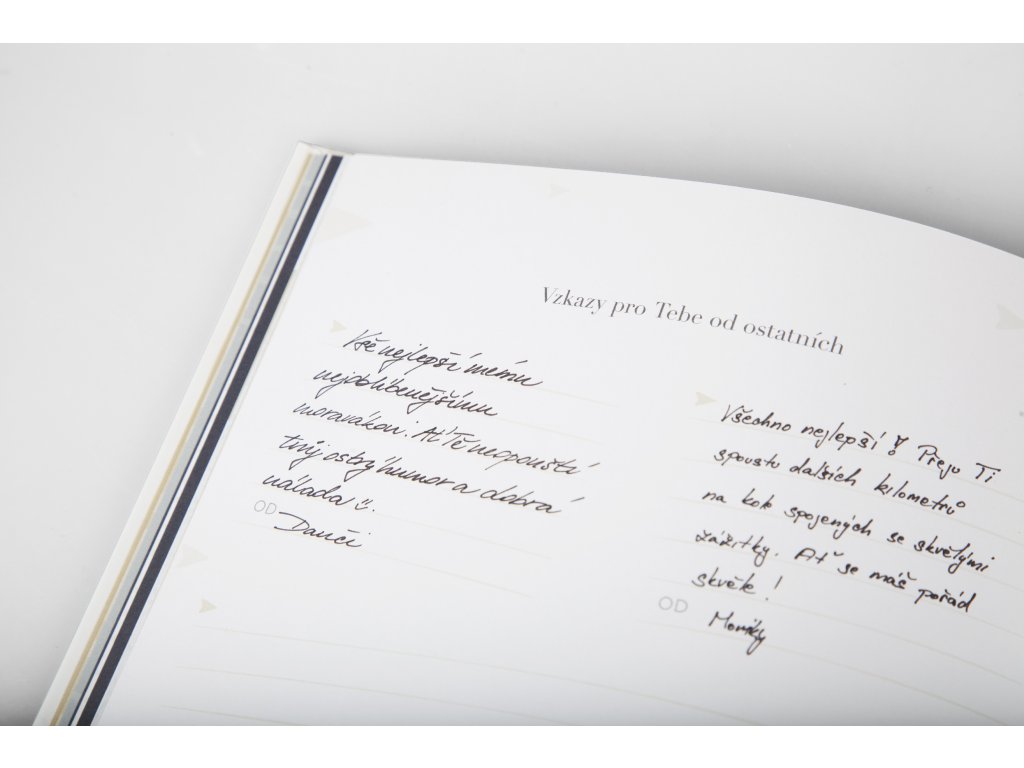 Vzkazy pro Tebe od ostatních
Vše nejlepší mému
nejoblíbenějšímu
moravákovi. Ať Tě neopouští
tvůj ostrý humor a dobrá
nálada☺.
OD Danči
Všechno nejlepší! Přeju Ti
spoustu dalších kilometrů
na kole spojených se skvělými
zážitky. Ať se máš pořád
skvěle!
OD